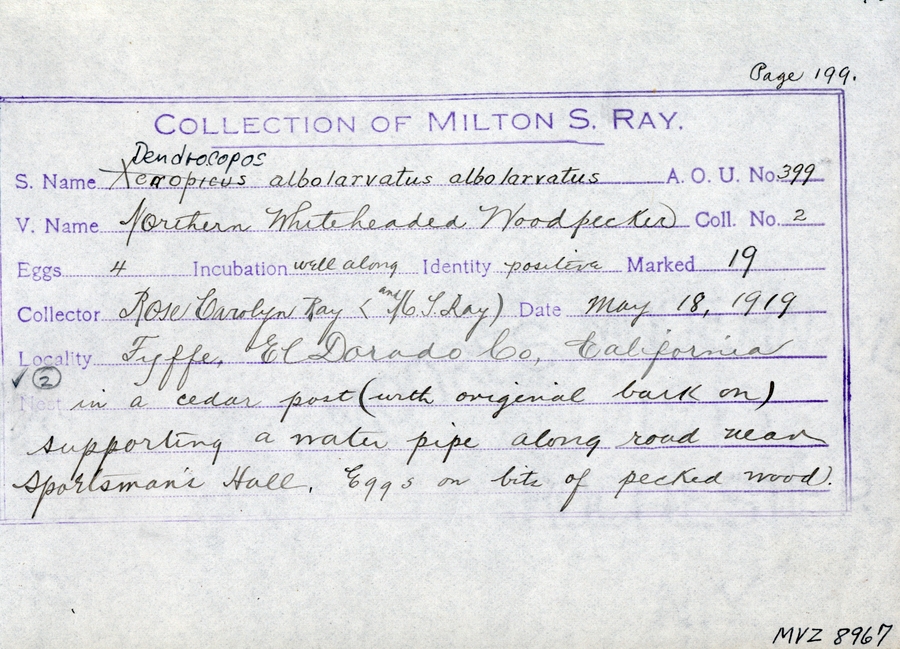 Page 199.
COLLECTION OF MILTON S. RAY.
Dendrocopos
S. Name Xenopicus albolarvatus albolarvatus A. O. U. No. 399
V. Name Northern Whiteheaded Woodpecker Coll. No. 2
Eggs 4 Incubation well along Identity positive Marked 19
Collector Rose Carolyn Ray (and M. S. Ray) Date May 18, 1919
Locality Fyffe, El Dorado Co, California
✓ ②
Nest in a cedar post (with original bark on)
supporting a water pipe along road near
Sportsman's Hall. Eggs on bits of pecked wood.
MVZ 8967